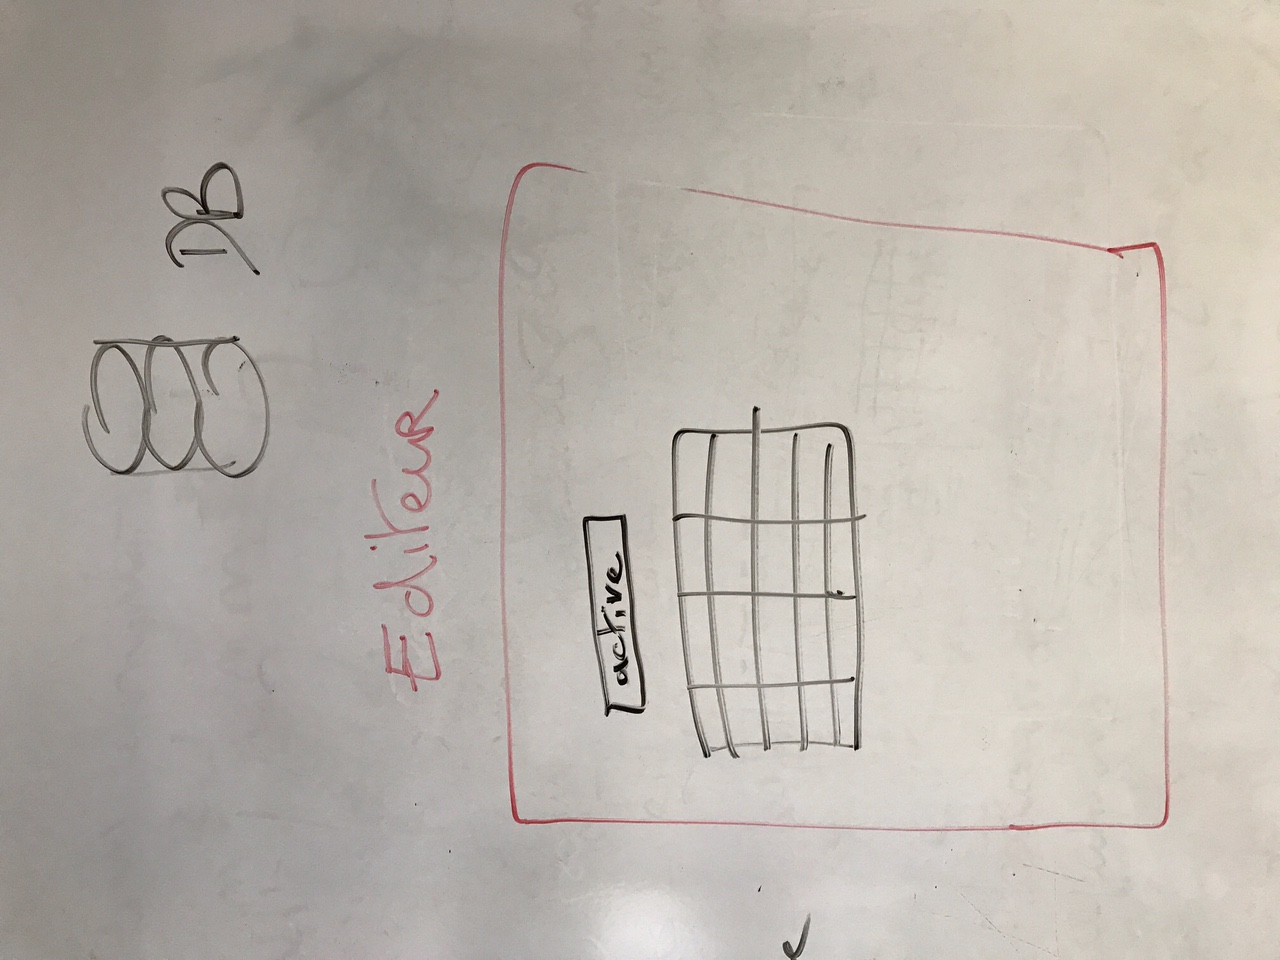 DB
Editeur
active